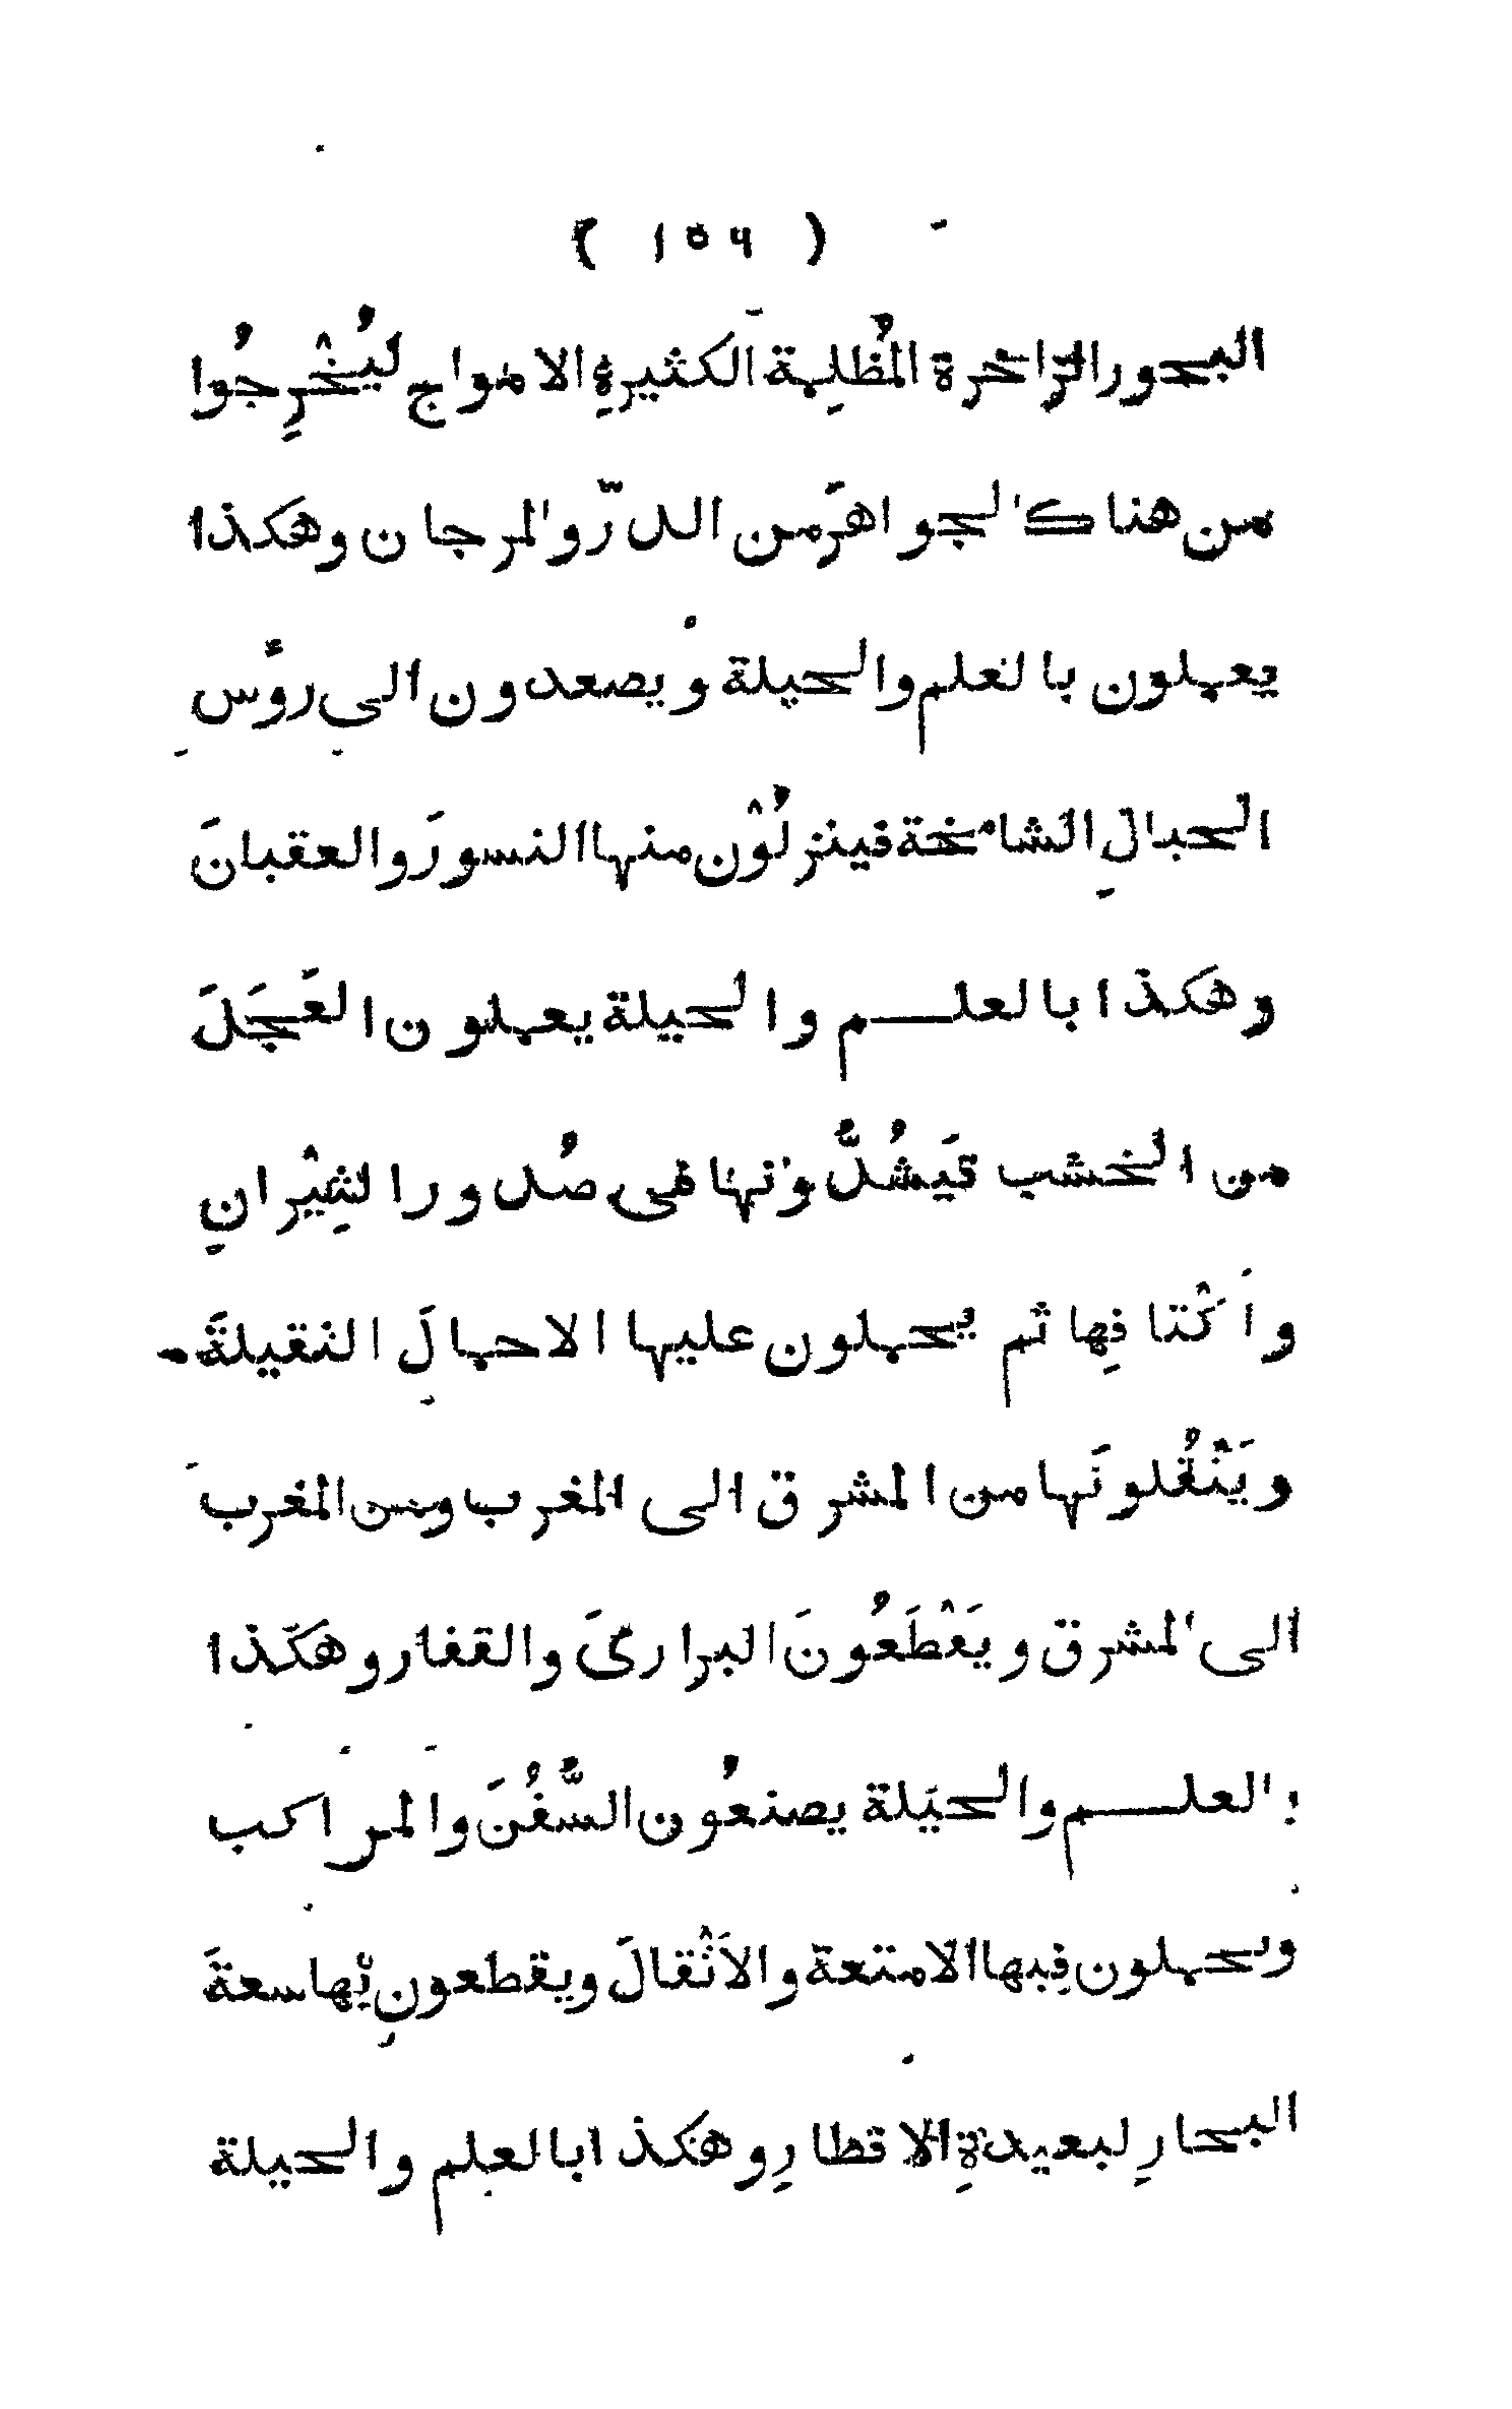 ( ١٥٦ )
البحور الزاخرة المُظلِمة الكثيرةِ الامواج ليُخْرِجُوا
من هناك الجواهرَ من الدرّ والمرجان وهكذا
يعملون بالعلم والحيلة ويصعدون الى رؤس
الجبالِ الشامخة فينزلُوْن منها النسورَ والعقبانَ
وهكذا بالعلم والحيلة يعملون العَجَلَ
من الخشب فيَشُدُّونها فى صُدور الثِيْرانِ
واَكْتافِها ثم يحملون عليها الاحمالَ الثقيلةَ
ويَنْقُلونَها من المشرق الى المغرب ومن المغرب
الى المشرق ويَقْطَعُونَ البرارىَ والقفار وهكَذا
بالعلم والحيَلة يصنعُون السُّفُنَ والمراكب
ويحملون فِيها الامتعة والاَثْقالَ ويقطعون بِها سعةَ
البحارِ البعيدةِ الاقطارِ وهكذا بالعلم والحيلة